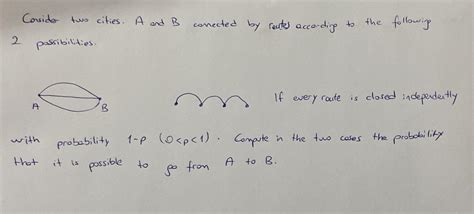 Consider two cities, A and B connected by routes according to the following
2 possibilities.
A B If every route is closed independently
with probability 1-p (0<p<1). Compute in the two cases the probability
that it is possible to go from A to B.